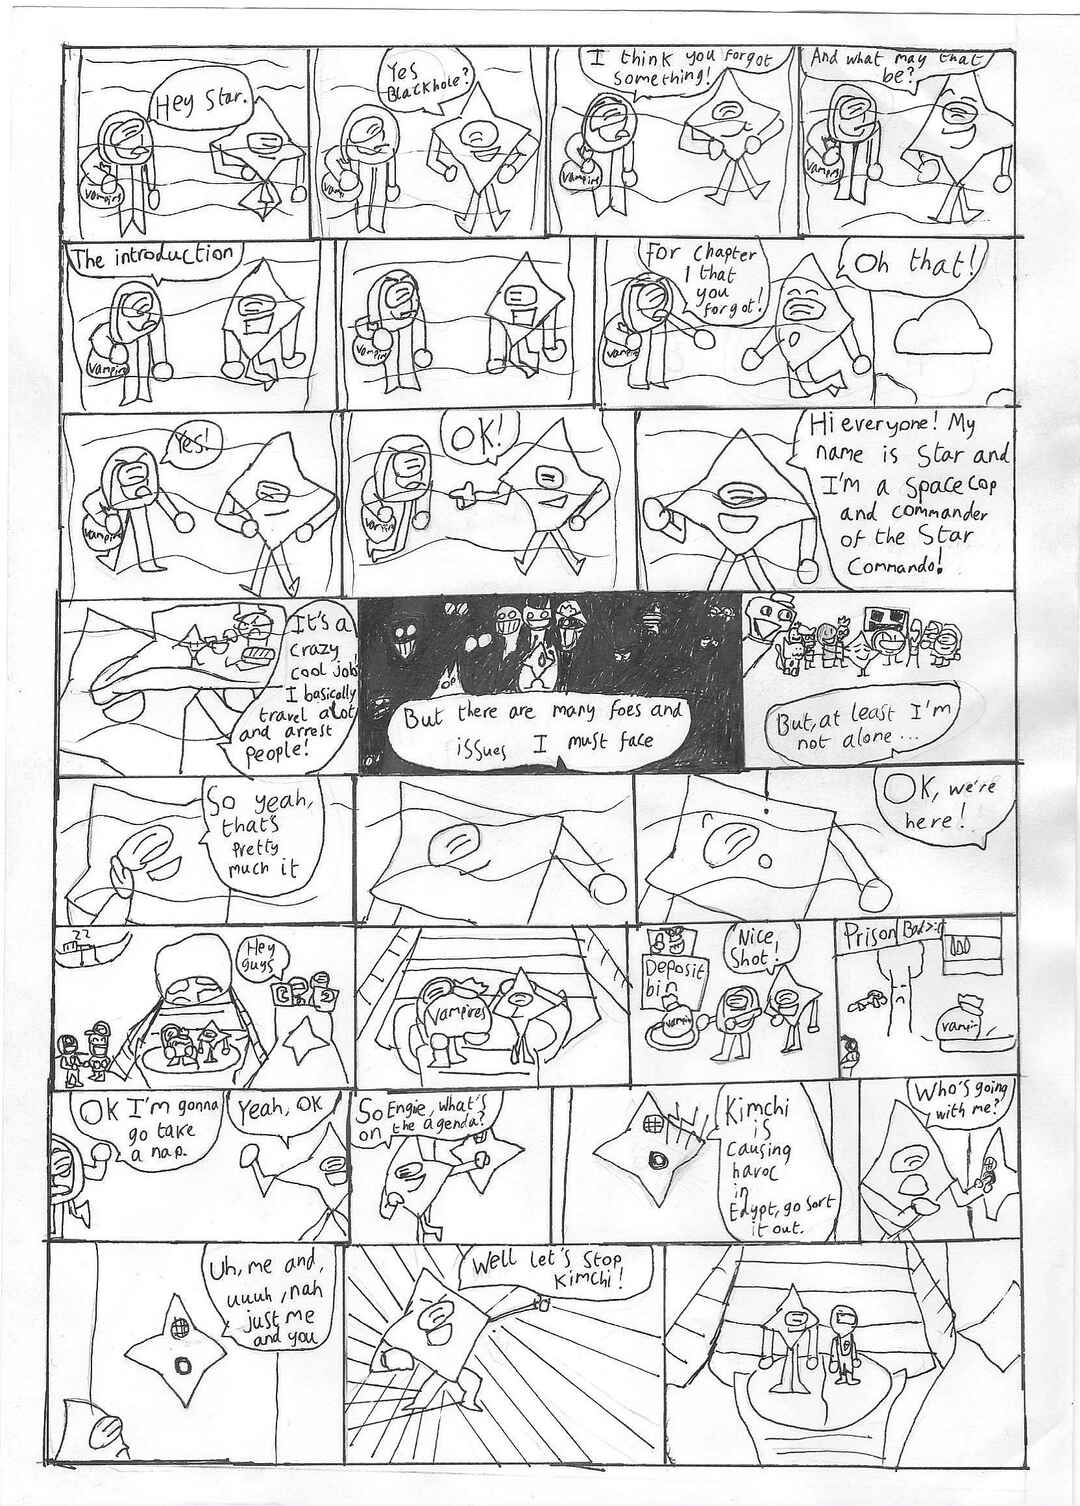 Hey Star.
vampire
Yes
Blackhole?
vamp
I think you forgot
something!
vampire
And what may that
be?
vampire
The introduction
vampire
vampire
For Chapter
1 that
you
forgot!
vampire
Oh that!
Yes!
vampire
OK!
vampire
Hi everyone! My
name is Star and
I'm a space cop
and commander
of the Star
Commando!
It's a
crazy
cool job
I basically
travel alot
and arrest
people!
But there are many foes and
issues I must face
But, at least I'm
not alone...
So yeah,
that's
Pretty
much it
OK, we're
here!
ZZ
Hey
guys
Vampires
Deposit
bin
vampire
Nice
Shot!
Prison
Bad>:(
vampire
OK I'm gonna
go take
a nap.
Yeah, OK
So Engie, what's
on the agenda?
Kimchi
is
Causing
havoc
in
Edypt, go sort
it out.
Who's going
with me?
Uh, me and,
uuuh, nah
just me
and you
Well let's stop
Kimchi!